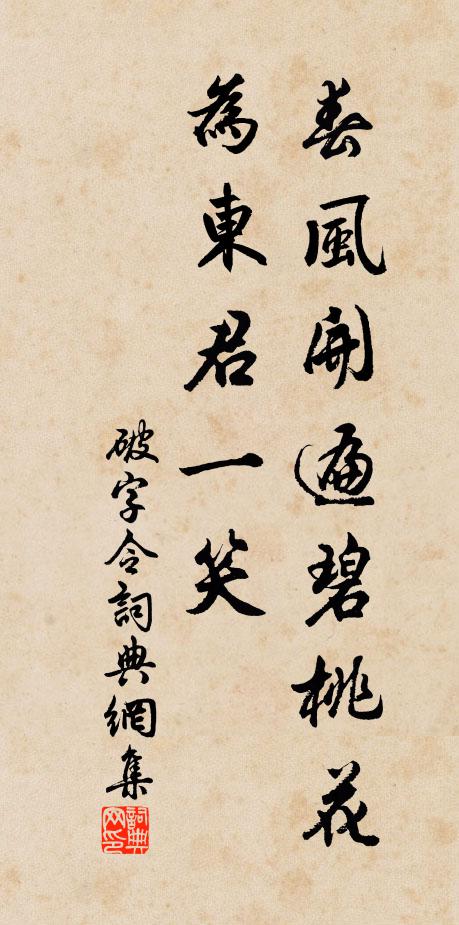 春風開遍碧桃花
為東君一笑
破字令詞典網集
詞典网印